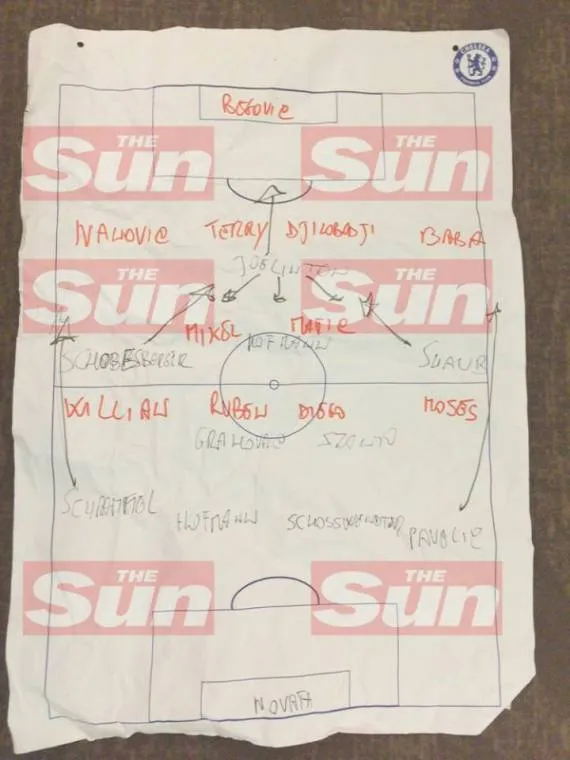 CHELSEA
BEGOVIC
THE Sun THE Sun
IVANOVIC TERRY DJILOBODJI BABA
JOELINTON
THE Sun THE Sun
MIKEL MATIC
HOFMANN
SCHOBESBERGER SCHAUB
WILLIAN RUBEN DIEGO MOSES
GRAHOVAC SZANTO
SCHRAMMEL
HOFMANN PAVELIC
THE Sun THE Sun
NOVOTA